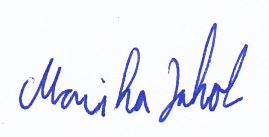 Monika Jakob